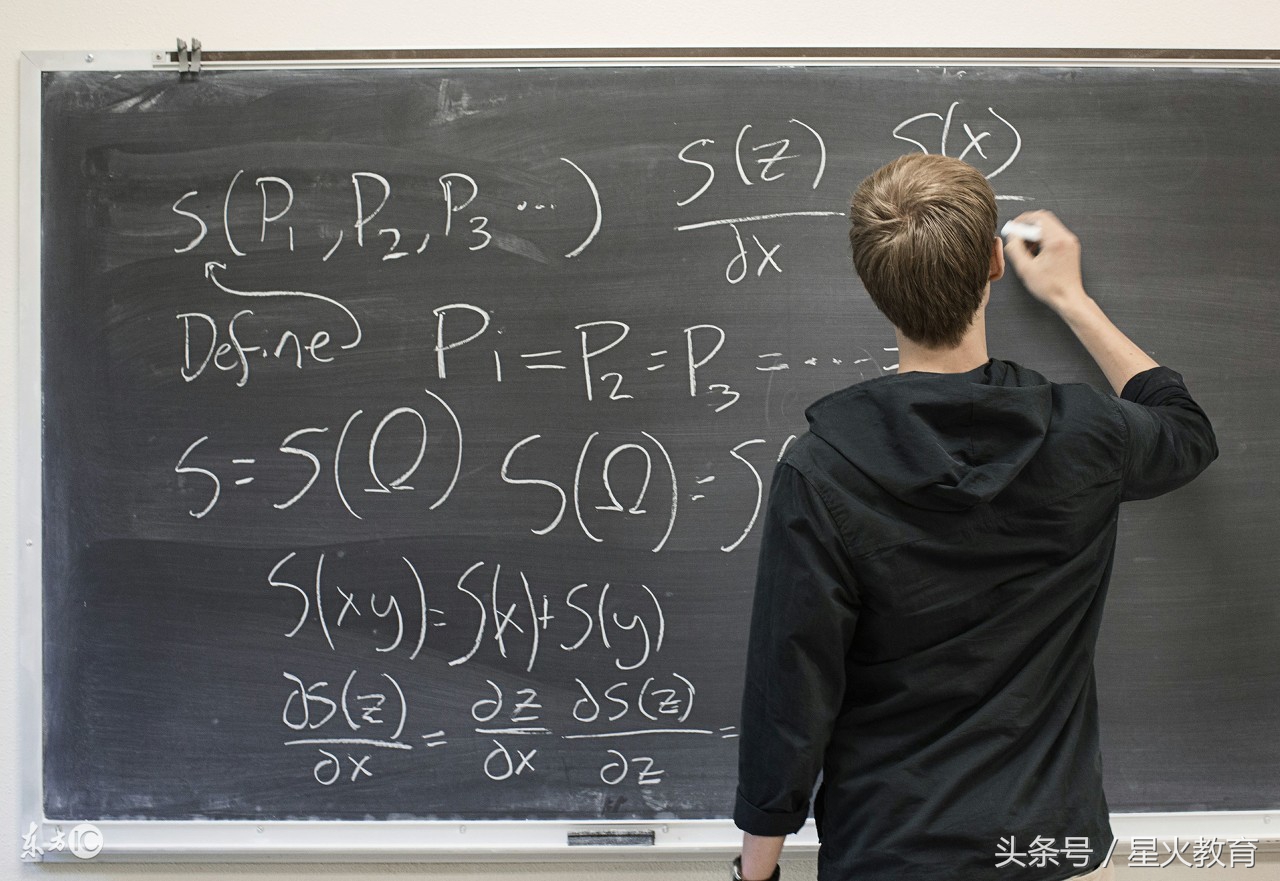 S(P₁, P₂, P₃ ...)
S(z)/∂x S(x)
Define P₁ = P₂ = P₃ = ... =
S = S(Ω) S(Ω) = S(
S(xy) = S(x) + S(y)
∂S(z)/∂x = ∂z/∂x ∂S(z)/∂z =
东方IC
头条号 / 星火教育